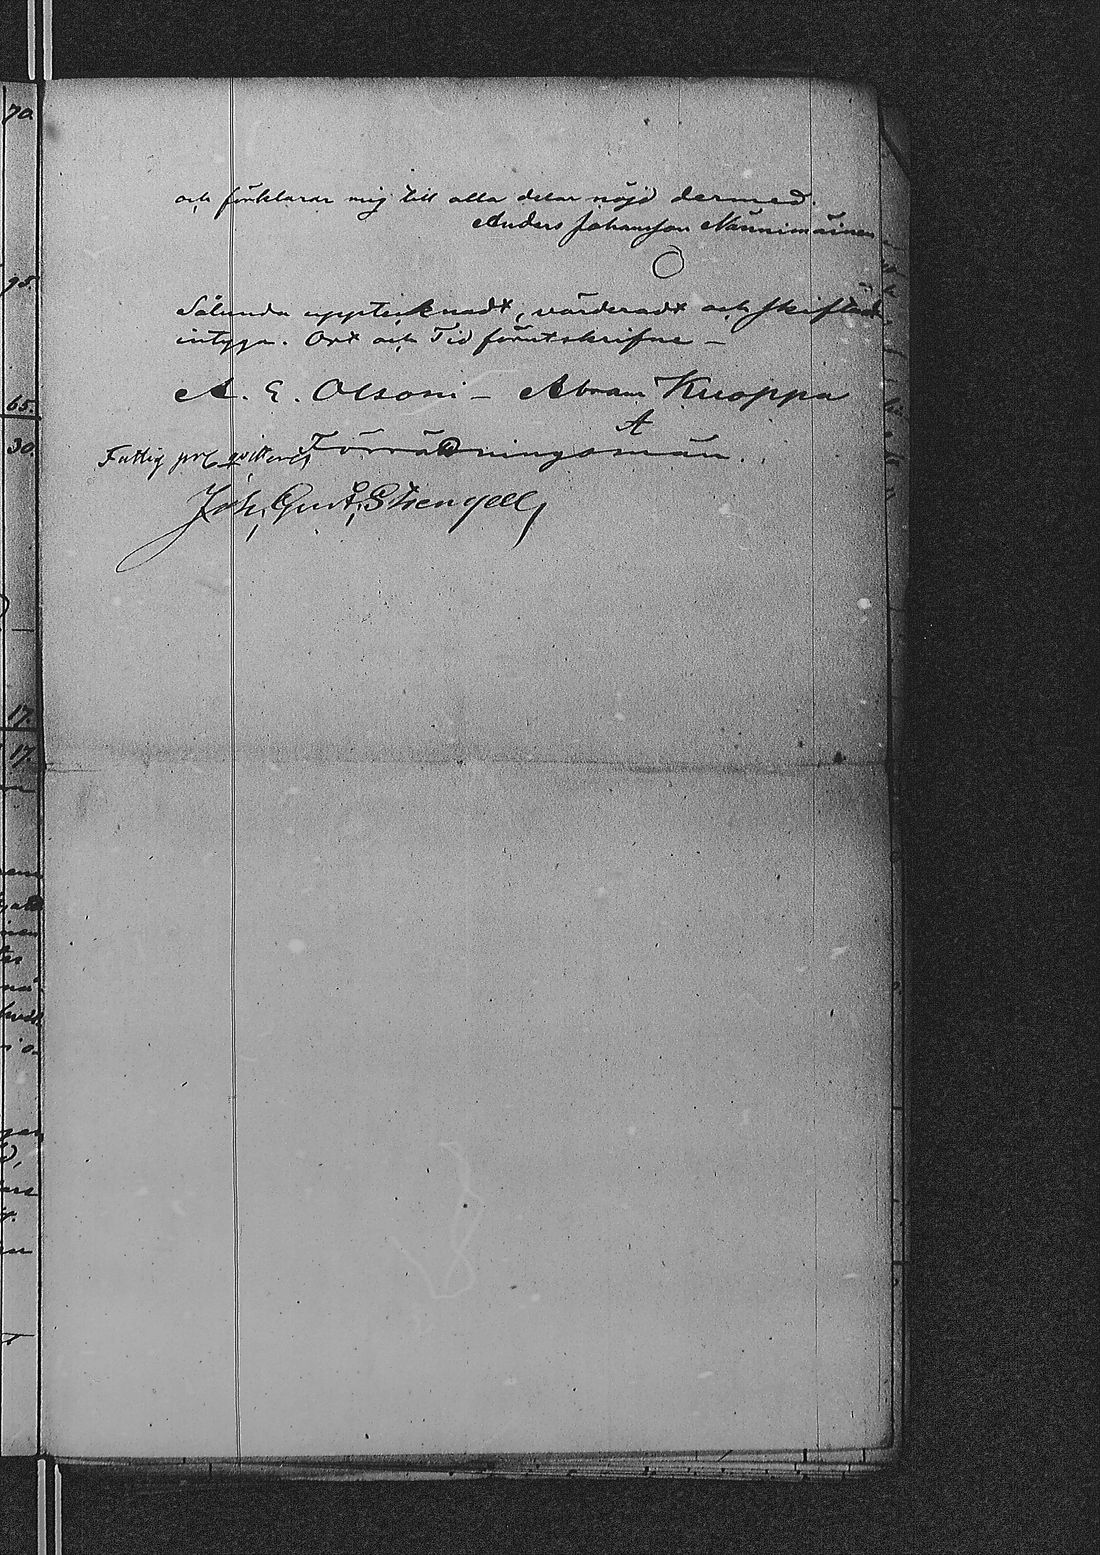 och förklarar mig till alla delar nöjd dermed.
Anders Johansson Nännimäinen
Sålunda upptecknadt, värderadt och skiftadt
intyga. Ort och Tid förutskrifne –
A. E. Olsoni – Abram Kuoppa
A
Förrädningsmän.
Fattig prc qvitteras
Joh. Gust. Strengell
70
95.
65.
30.
17.
17.